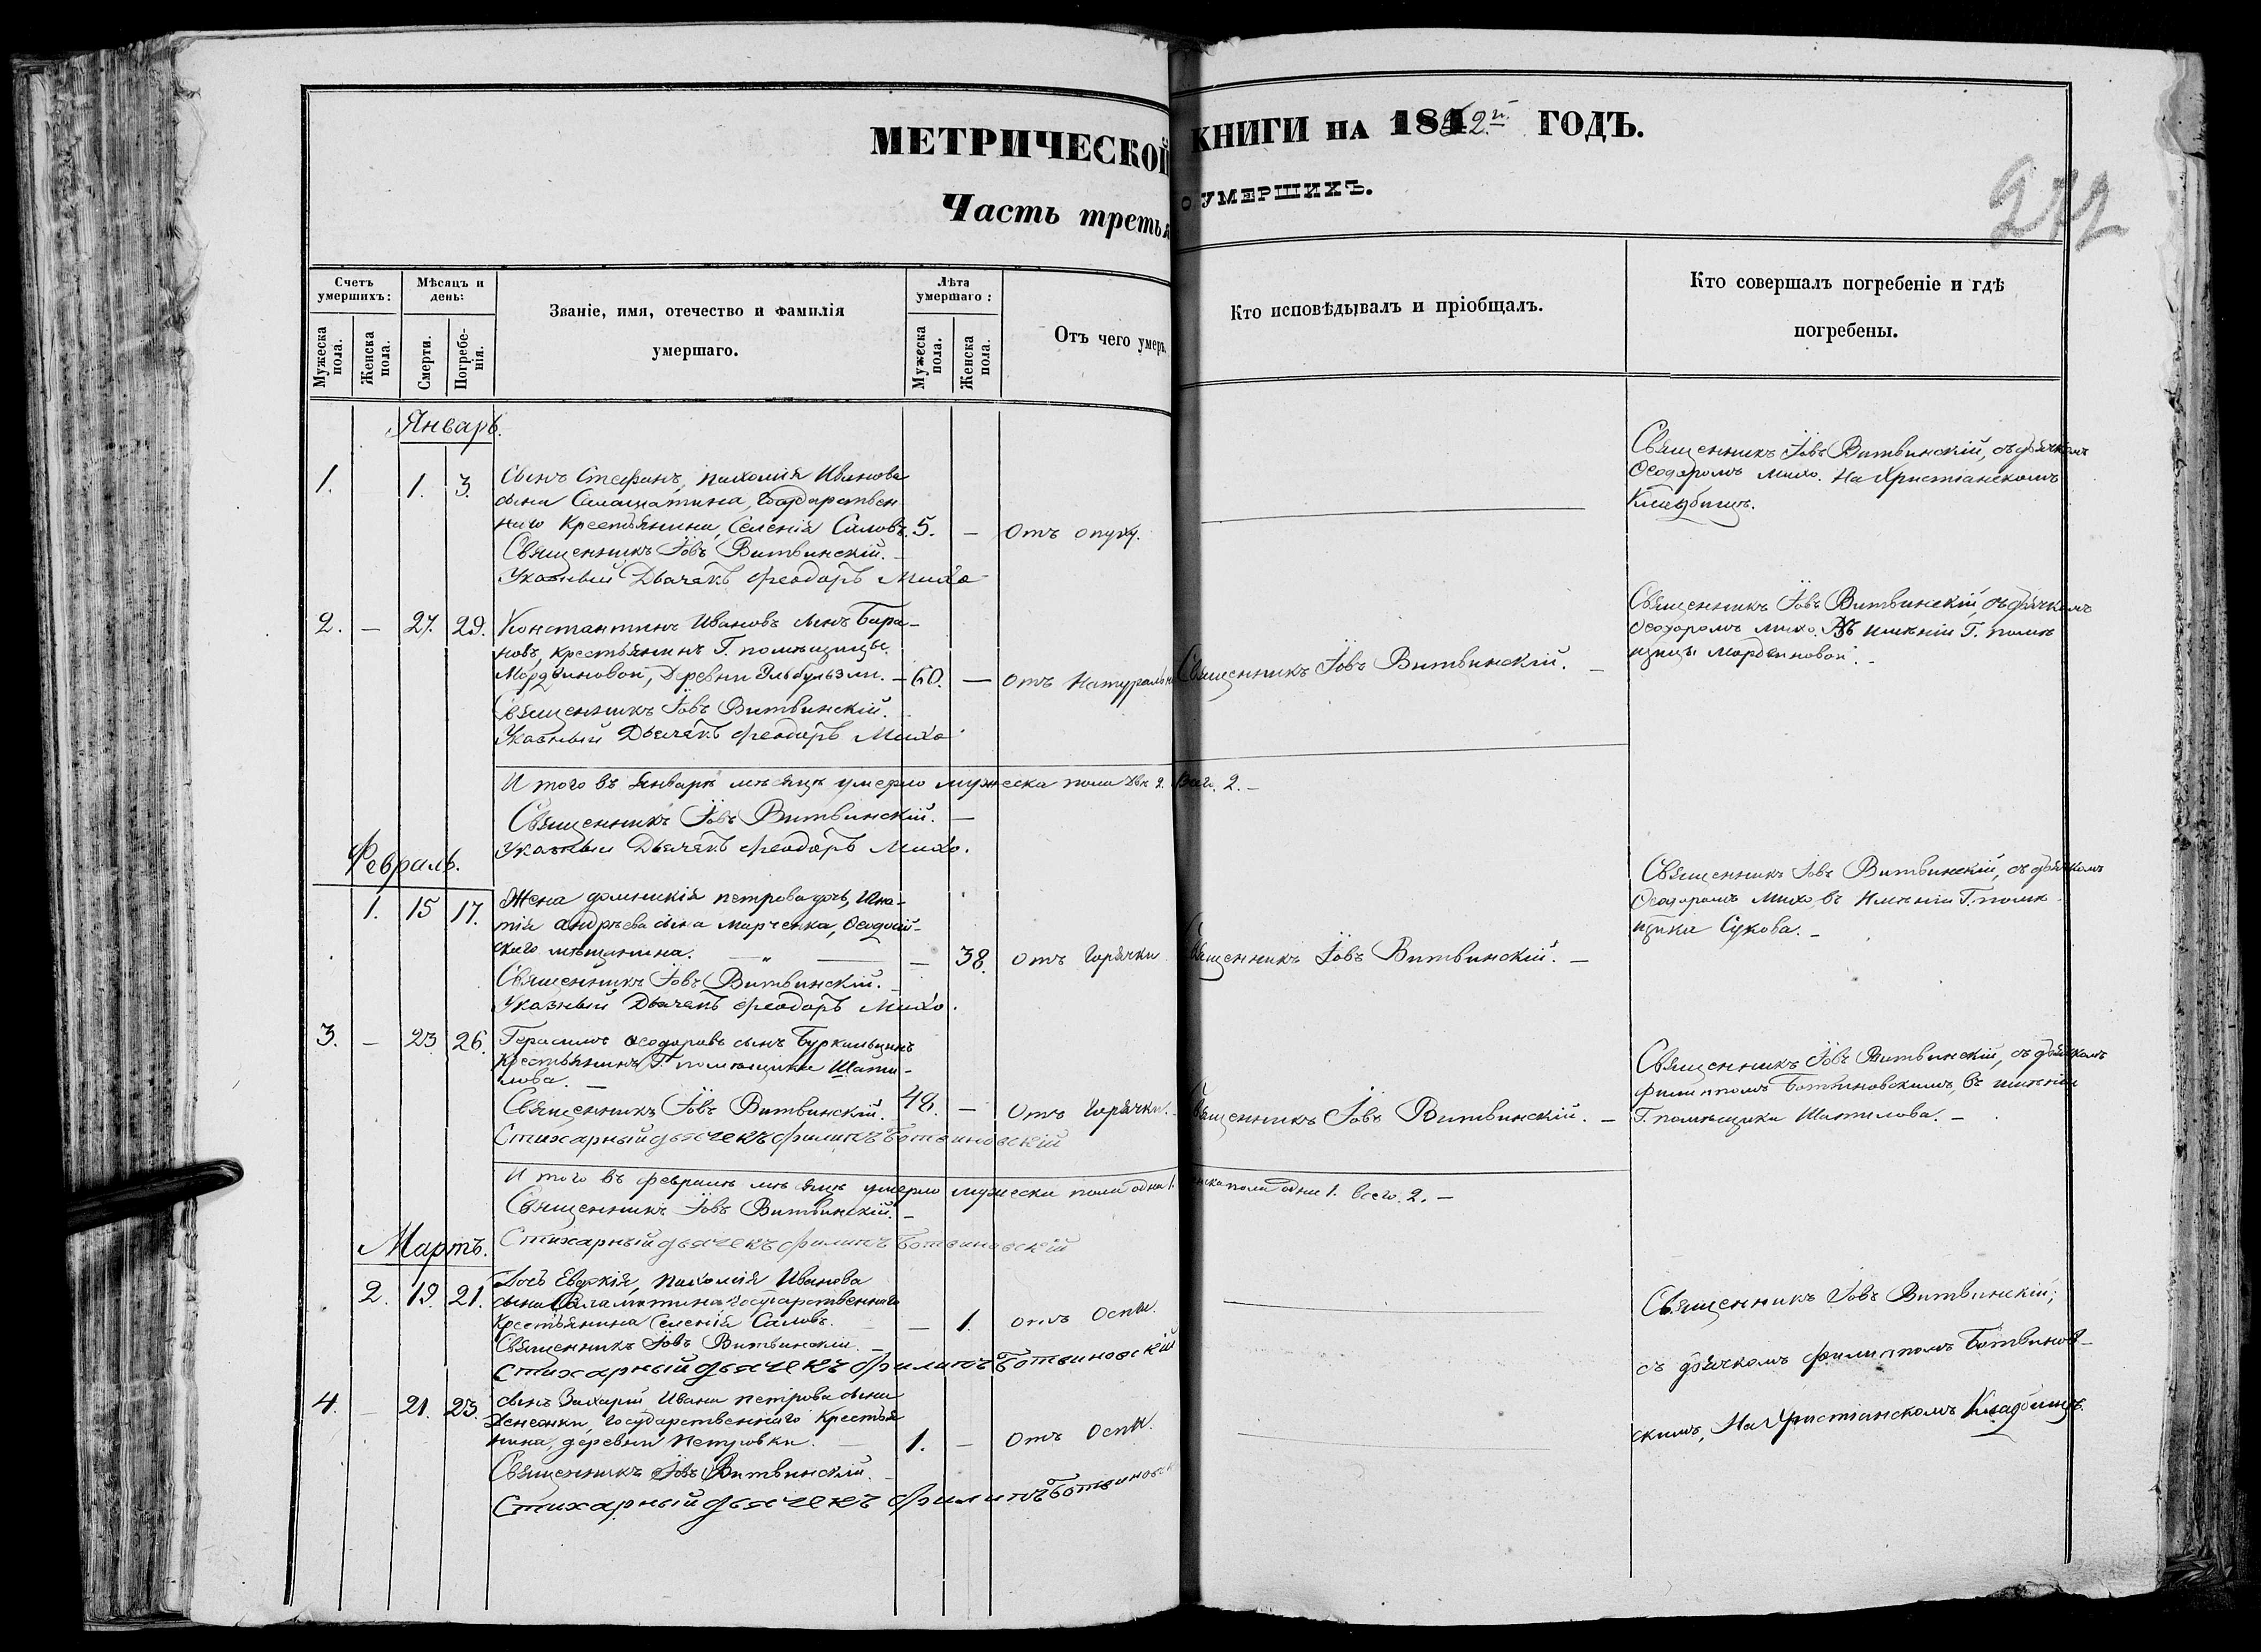 МЕТРИЧЕСКОЙ КНИГИ НА 1842й ГОДЪ.
272
Часть третья О УМЕРШИХЪ.
Счетъ умершихъ:
Мужеска пола.
Женска пола.
Мѣсяцъ и день:
Смерти.
Погребенія.
Званіе, имя, отечество и фамилія
умершаго.
Лѣта умершаго:
Мужеска пола.
Женска пола.
Отъ чего умеръ.
Кто исповѣдывалъ и пріобщалъ.
Кто совершалъ погребеніе и гдѣ
погребены.
Январь.
1. 1. 3. Сынъ Стефанъ, пахомія Иванова
сына Саламатина, Государствен
наго Крестьянина, Селенія Саловъ. 5. — Отъ опух.
Священникъ Іовъ Витвинскій.
Указный Дьячекъ Феодоръ Михо
Священникъ Іовъ Витвинскій, съ дьячкомъ
Ѳеодоромъ Михо. На Христіанскомъ
Кладбищѣ.
2. — 27. 29. Константинъ Ивановъ сынъ Бара-
новъ, крестьянинъ Г. помѣщицы
Мордвиновой, Древни Эльбузлы. — 60. — Отъ Натуральн Священникъ Іовъ Витвинскій. —
Священникъ Іовъ Витвинскій.
Указный Дьячекъ Феодоръ Михо
Священникъ Іовъ Витвинскій, съ дьячкомъ
Ѳеодоромъ Михо. Въ имѣніи Г. помѣ
щицы Мордвиновой. —
И того въ Январѣ мѣсяцѣ умерло мужеска пола два 2. Всего. 2. —
Священникъ Іовъ Витвинскій. —
Указный Дьячекъ Феодоръ Михо.
Февраль.
1. 15 17. Жена домникія петрова дочь, Игна-
тія андрѣева сына марченка, Ѳеодосій-
скаго мѣщанина. — 38. Отъ Горячки Священникъ Іовъ Витвинскій. —
Священникъ Іовъ Витвинскій.
Указный Дьячекъ Феодоръ Михо.
Священникъ Іовъ Витвинскій, съ дьячкомъ
Ѳеодоромъ Михо, въ Имѣніи Г. помѣ
щика Сукова. —
3. — 23 26. Герасимъ Ѳеодоровъ сынъ
Крестьянинъ Г. помѣщика Шати-
лова. —
Священникъ Іовъ Витвинскій. 48. — Отъ Горячки. Священникъ Іовъ Витвинскій. —
Стихарный дьячекъ Филипъ Ботвиновскій
Священникъ Іовъ Витвинскій, съ дьячкомъ
Филиппомъ Ботвиновскимъ, въ имѣніи
Г. помѣщика Шатилова. —
И того въ февралѣ мѣсяцѣ умерло мужеска пола одна 1. женска пола одна 1. всего. 2. —
Священникъ Іовъ Витвинскій. —
Стихарный дьячекъ Филипъ Ботвиновскій
Мартъ.
2. 19. 21. Дочь Евдокія, пахомія Иванова
сына Саламатина Государственнаго
Крестьянина Селенія Саловъ. — 1. отъ Оспы.
Священникъ Іовъ Витвинскій.
Стихарный дьячекъ Филипъ Ботвиновскій
4. — 21. 23. сынъ Захарій, Ивана петрова сына
Государственнаго Крестья
нина, деревни Петровки. — 1. — Отъ Оспы.
Священникъ Іовъ Витвинскій.
Стихарный дьячекъ Филипъ Ботвиновск
Священникъ Іовъ Витвинскій,
съ дьячкомъ Филиппомъ Ботвинов-
скимъ, На Христіанскомъ Кладбищѣ.